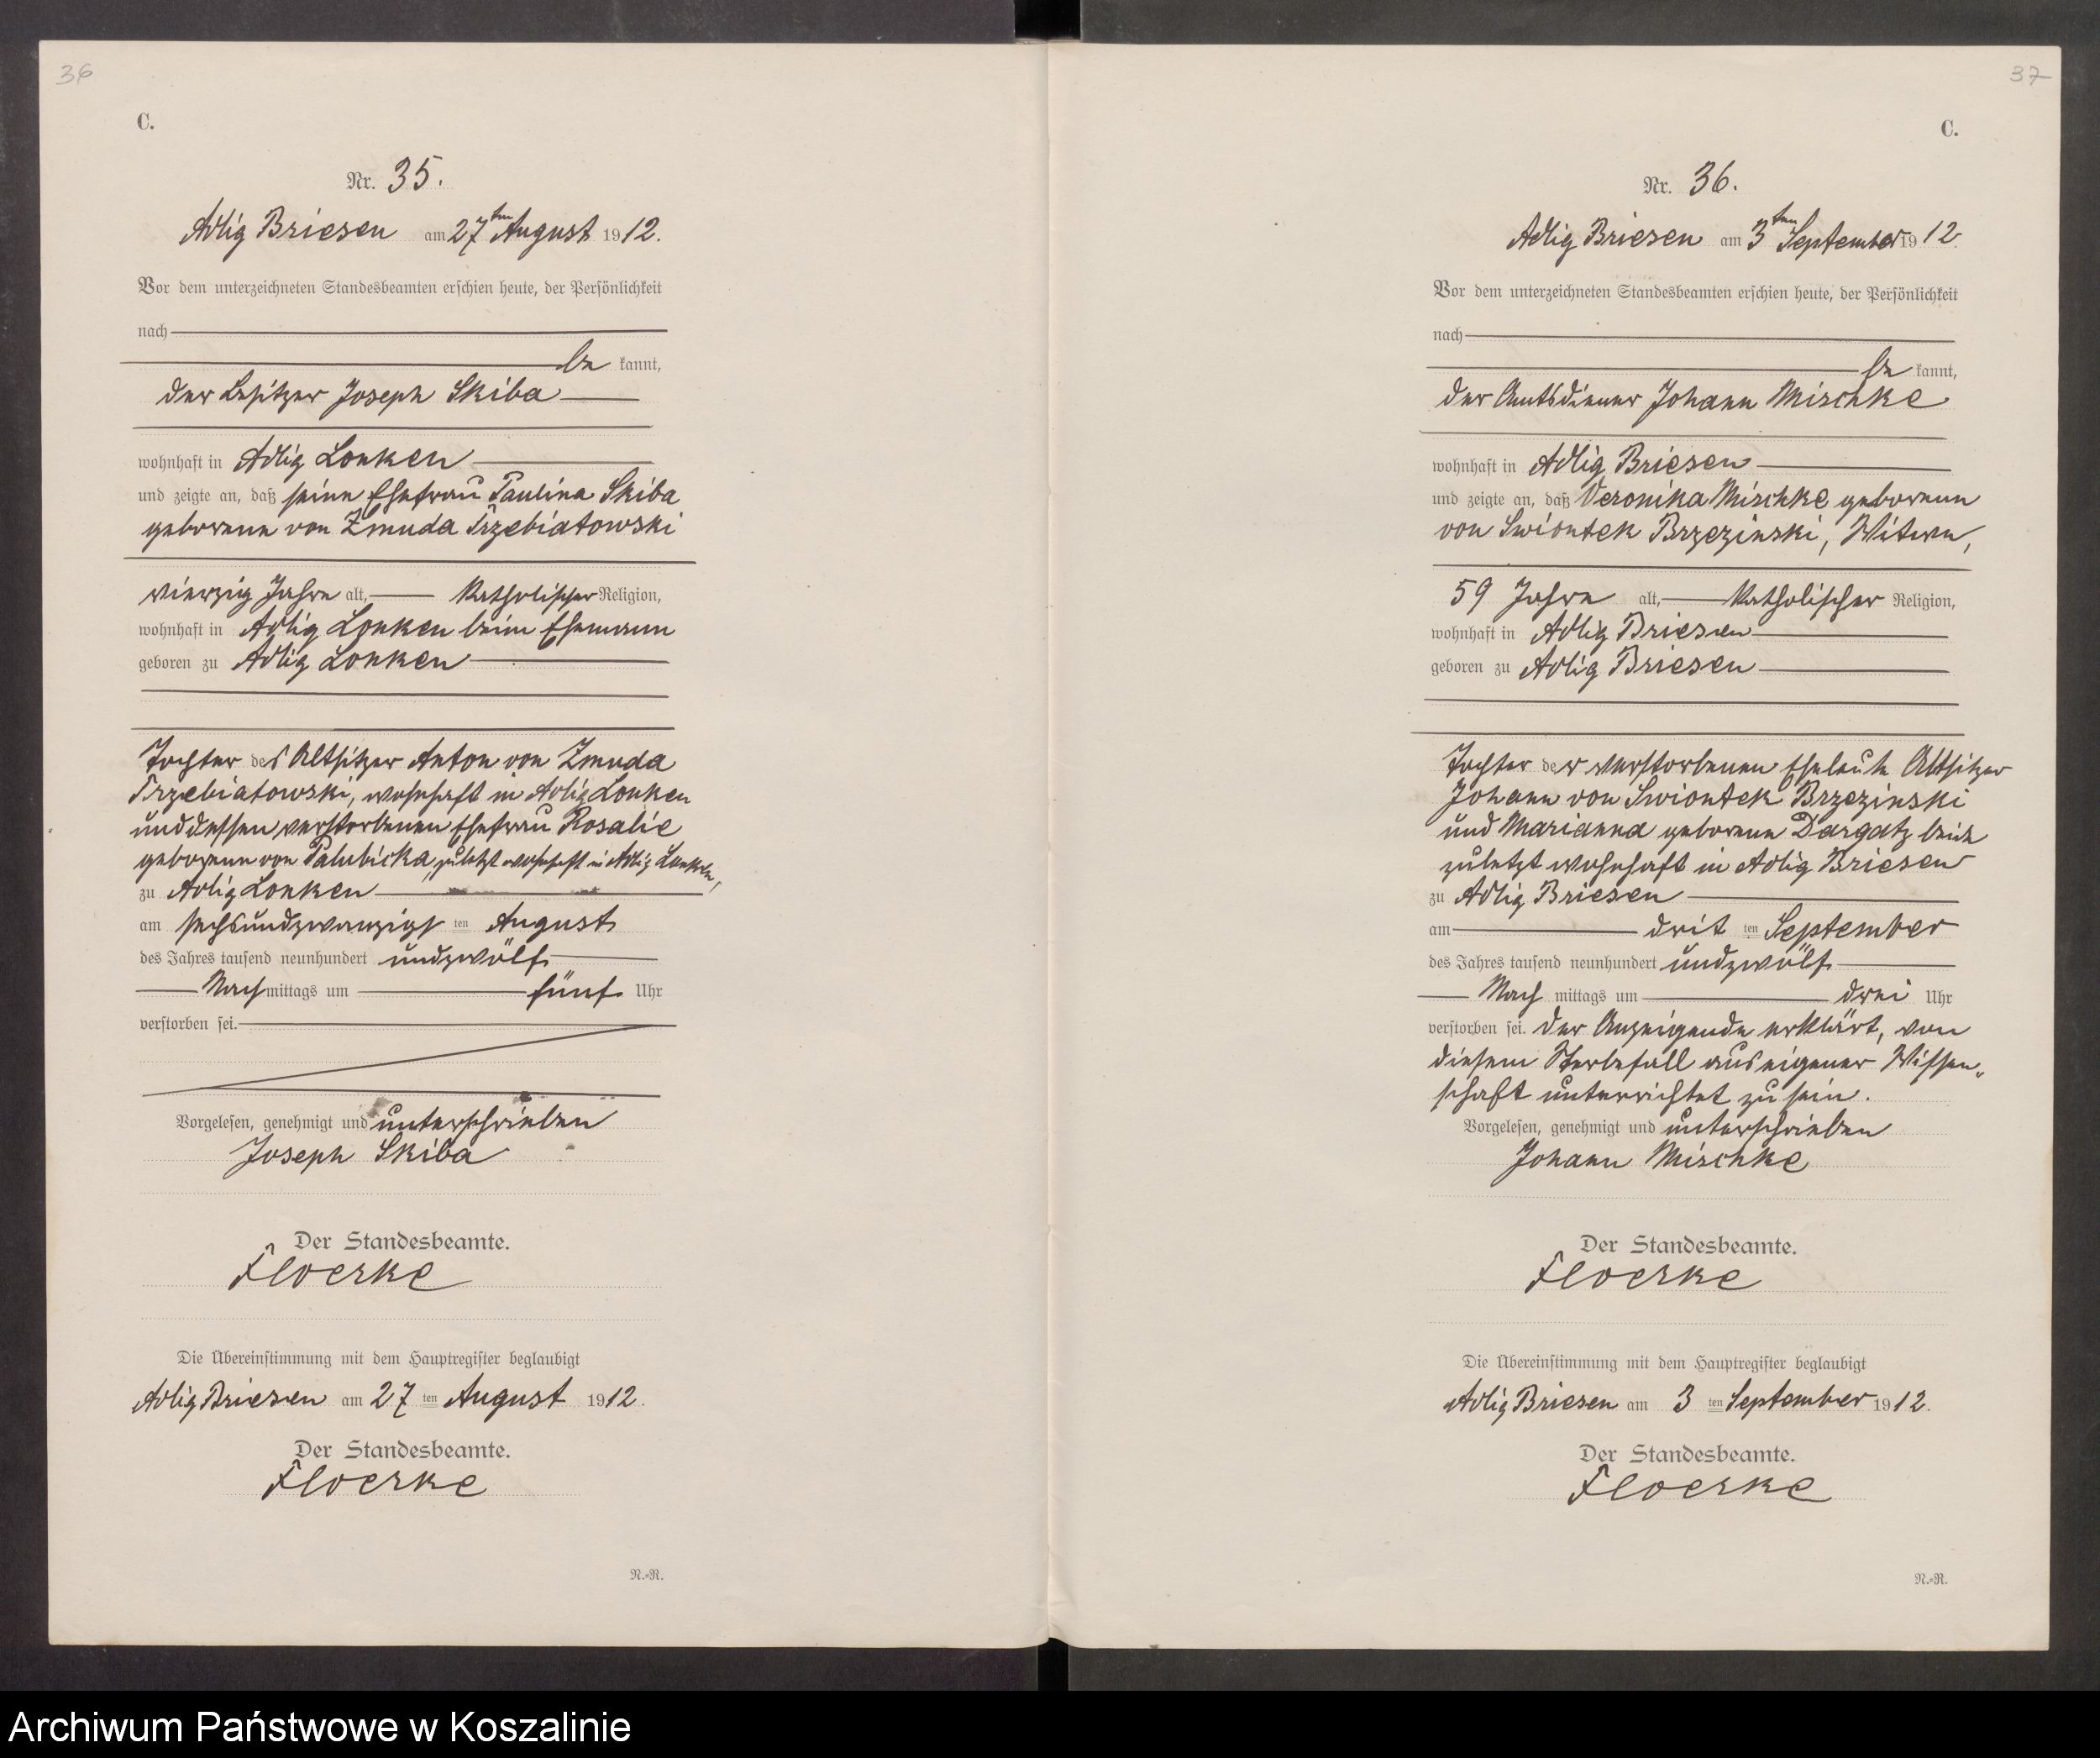 36
C.
Nr. 35.
Adlig Briesen am 27ten August 1912.
Vor dem unterzeichneten Standesbeamten erschien heute, der Persönlichkeit
nach
be kannt,
der Besitzer Joseph Skiba
wohnhaft in Adlig Lonken
und zeigte an, daß seine Ehefrau Paulina Skiba
geborene von Zmuda Trzebiatowski
vierzig Jahre alt, katholischer Religion,
wohnhaft in Adlig Lonken beim Ehemann
geboren zu Adlig Lonken
Tochter des Altsitzer Anton von Zmuda
Trzebiatowski, wohnhaft in Adlig Lonken
und dessen verstorbenen Ehefrau Rosalie
geborene von Palubicka, zuletzt wohnhaft in Adlig Lonken,
zu Adlig Lonken
am sechsundzwanzigs ten August
des Jahres tausend neunhundert undzwölf
Nach mittags um fünf Uhr
verstorben sei.
Vorgelesen, genehmigt und unterschrieben
Joseph Skiba
Der Standesbeamte.
Floerke
Die Übereinstimmung mit dem Hauptregister beglaubigt
Adlig Briesen am 27 ten August 1912.
Der Standesbeamte.
Floerke
N.-R.
37
C.
Nr. 36.
Adlig Briesen am 3ten September 1912
Vor dem unterzeichneten Standesbeamten erschien heute, der Persönlichkeit
nach
be kannt,
der Amtsdiener Johann Mischke
wohnhaft in Adlig Briesen
und zeigte an, daß Veronika Mischke geborene
von Swiontek Brzezinski, Witwe,
59 Jahre alt, katholischer Religion,
wohnhaft in Adlig Briesen
geboren zu Adlig Briesen
Tochter der verstorbenen Eheleute Altsitzer
Johann von Swiontek Brzezinski
und Marianna geborene Dargatz beide
zuletzt wohnhaft in Adlig Briesen
zu Adlig Briesen
am drit ten September
des Jahres tausend neunhundert undzwölf
Nach mittags um drei Uhr
verstorben sei. Der Anzeigende erklärt, von
diesem Sterbefall aus eigener Wissen-
schaft unterrichtet zu sein.
Vorgelesen, genehmigt und unterschrieben
Johann Mischke
Der Standesbeamte.
Floerke
Die Übereinstimmung mit dem Hauptregister beglaubigt
Adlig Briesen am 3 ten September 1912.
Der Standesbeamte.
Floerke
N.-R.
Archiwum Państwowe w Koszalinie